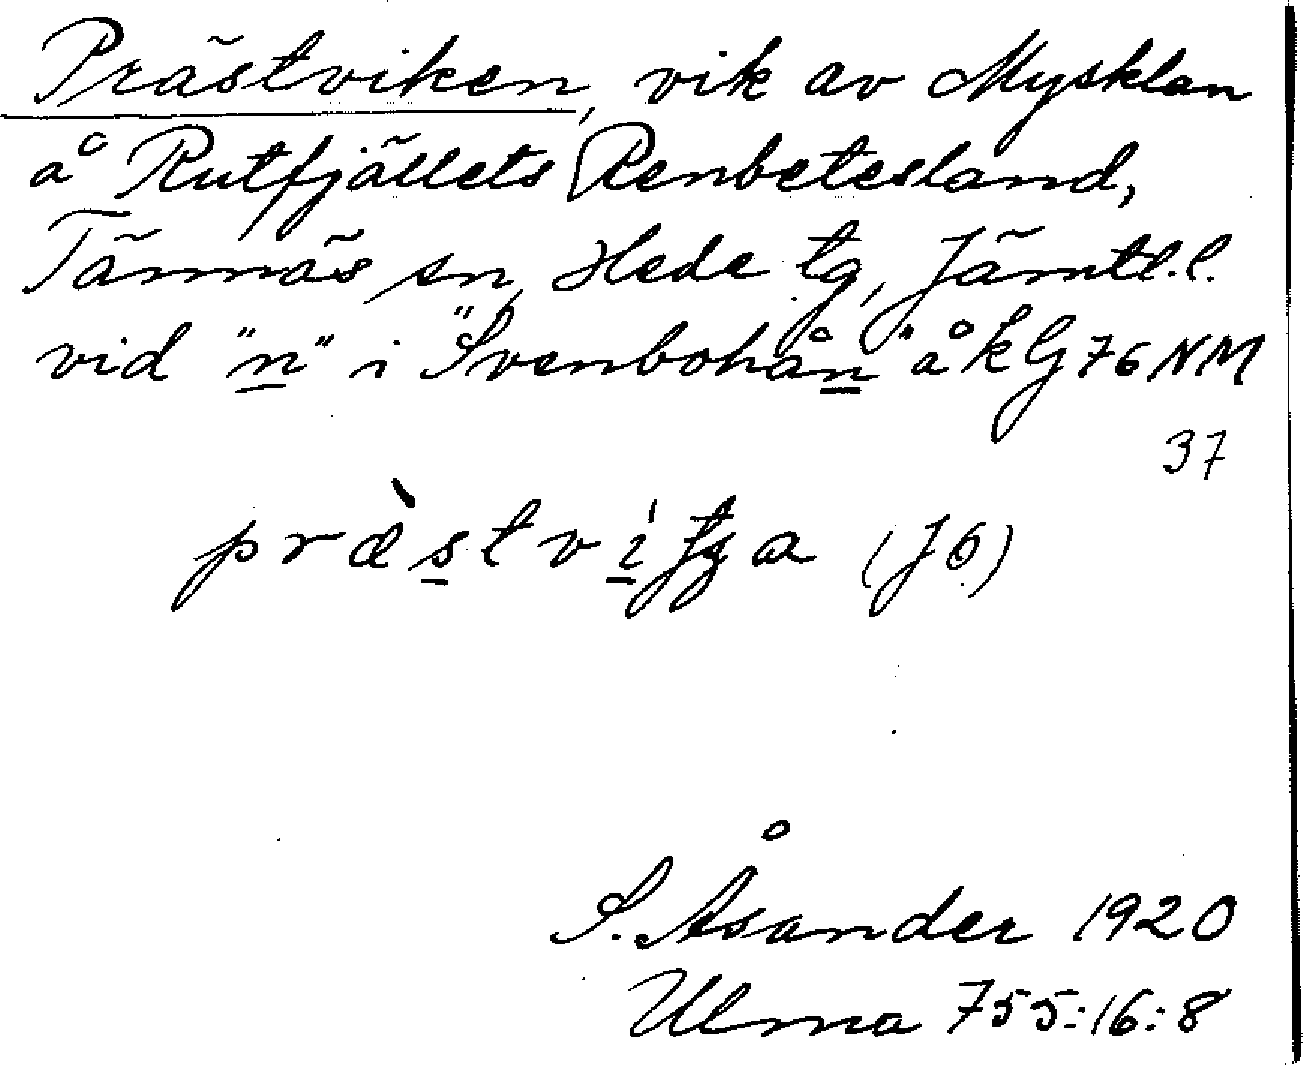 Prästviken, vik av Mysklan
å Rutfjällets Renbetesland,
Tännäs sn, Hede tg, Jämtl.l.
vid "n" i "Svenbohån" å k G 76 NM
37
præstvi a (JÖ)
S. Åsander 1920
Ulma 755:16:8